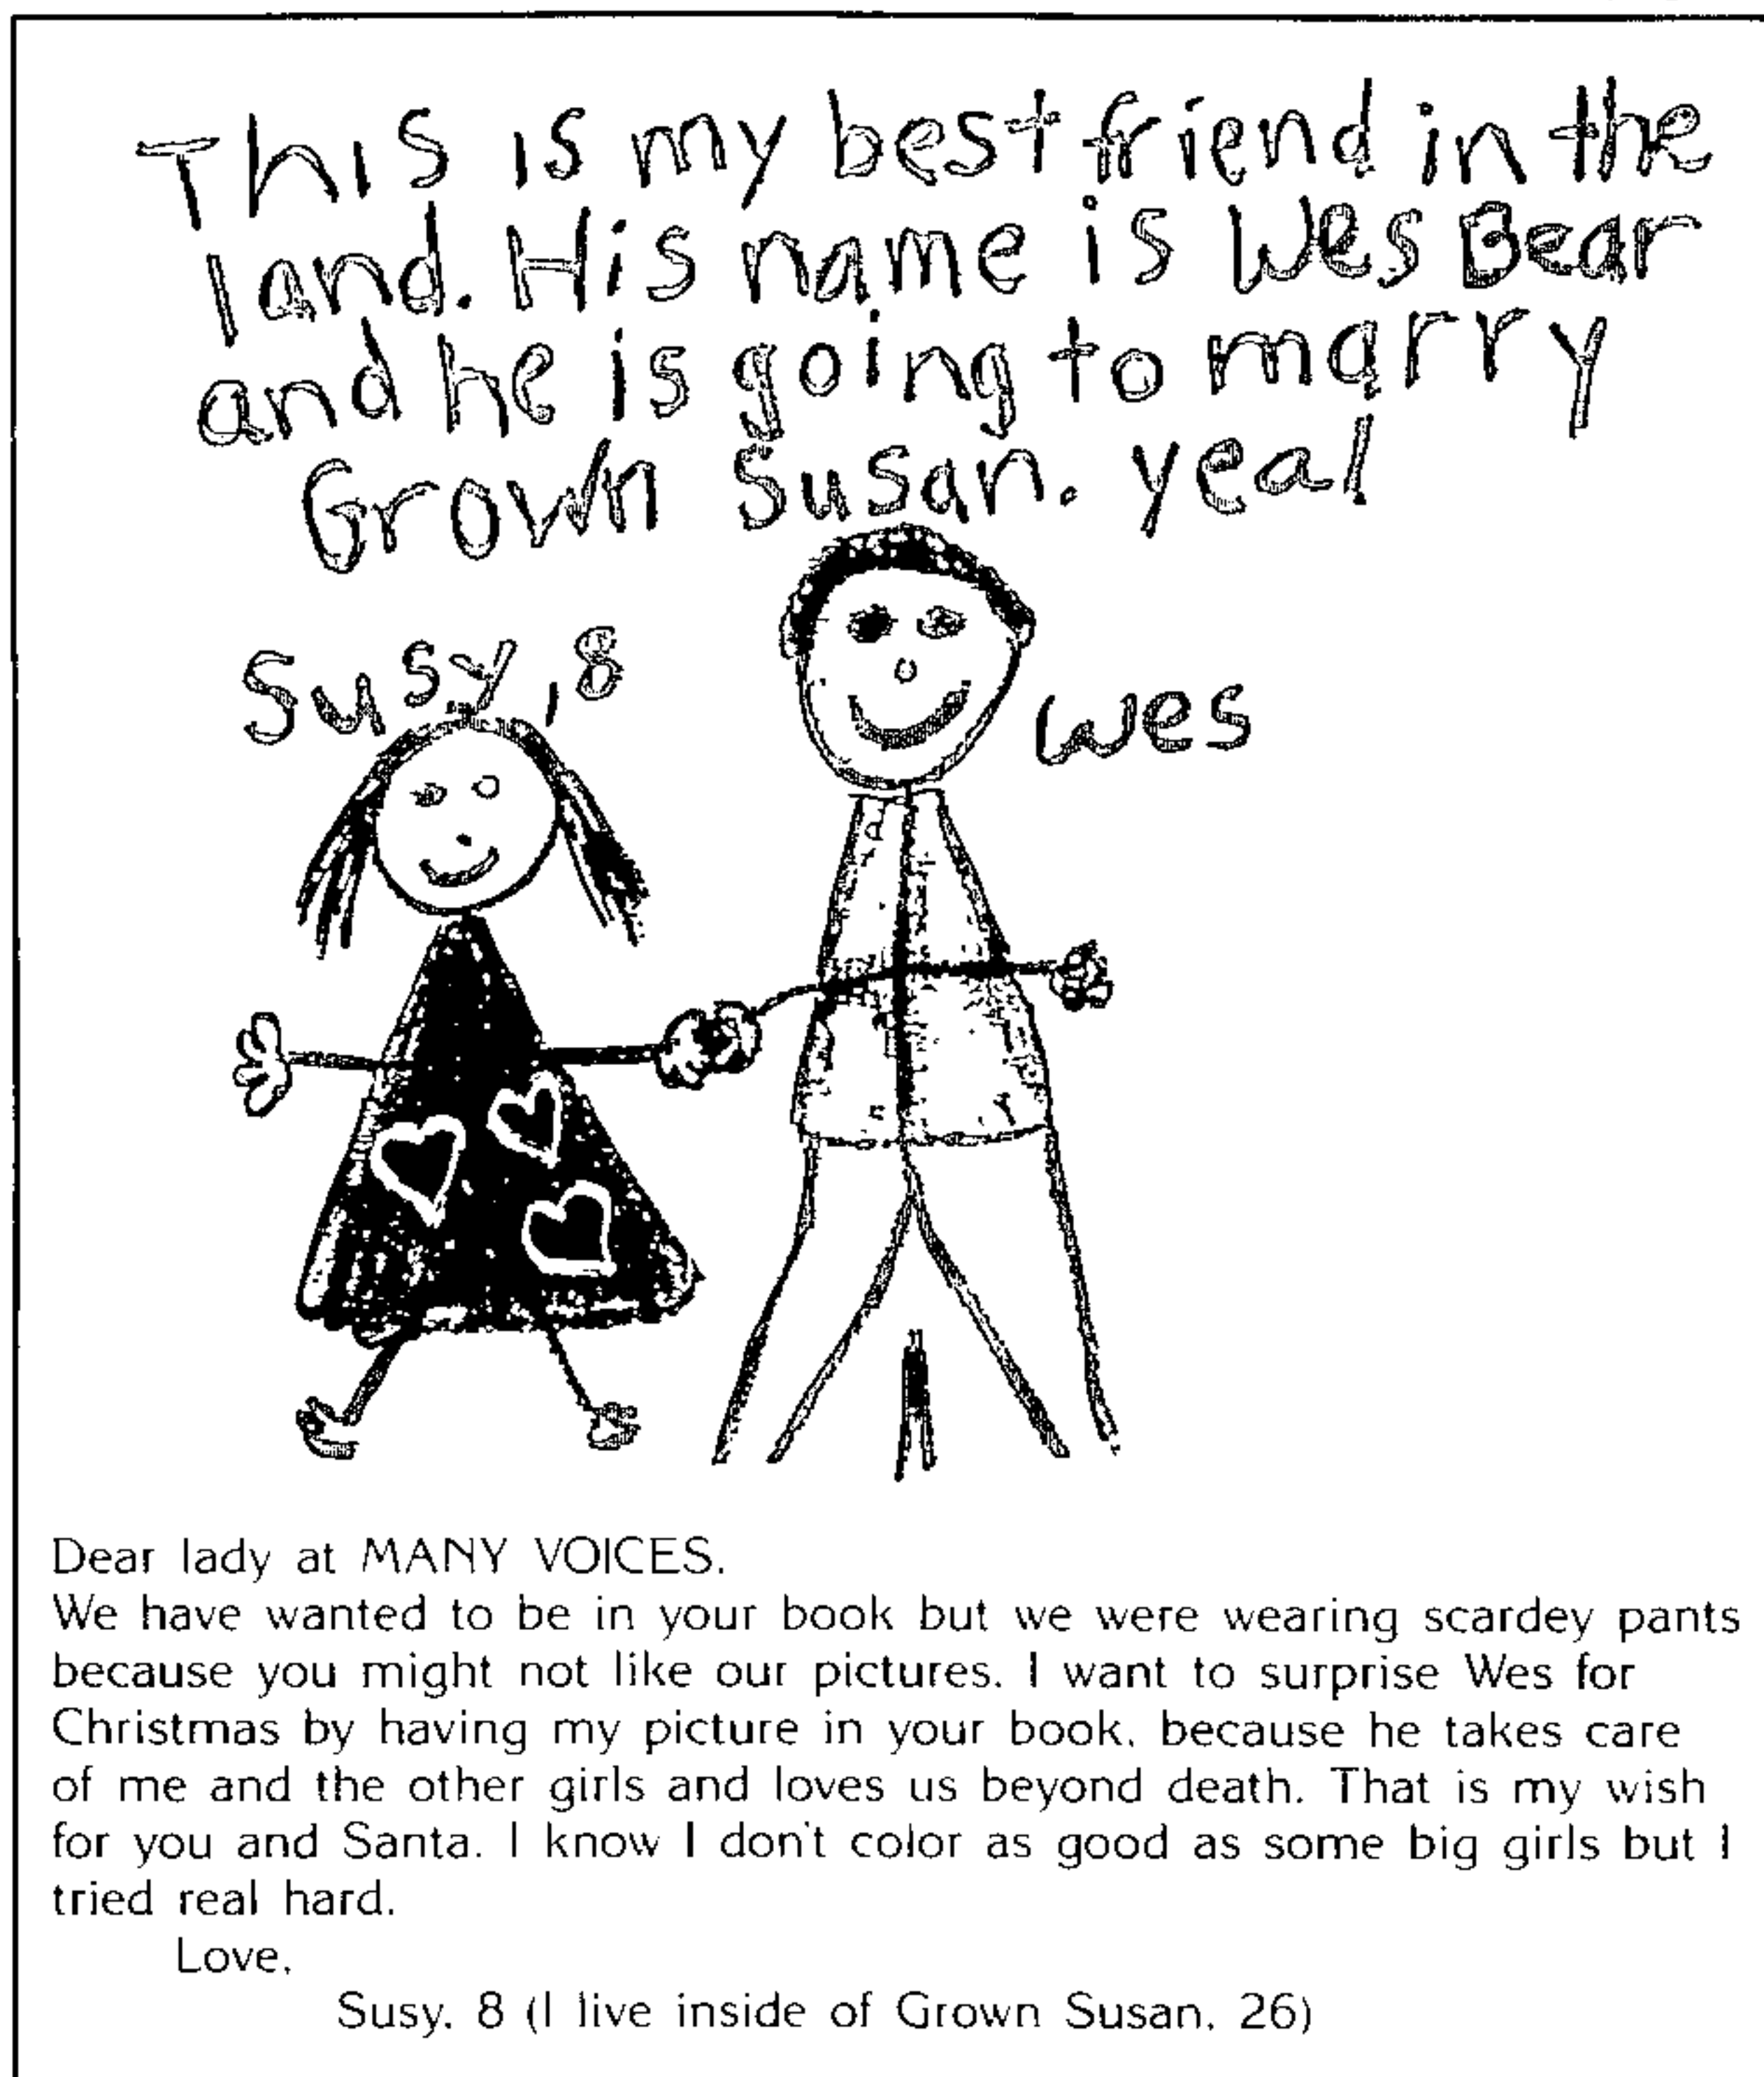 This is my best friend in the
land. His name is Wes Bear
and he is going to marry
Grown Susan. yea!
Susy, 8
Wes
Dear lady at MANY VOICES.
We have wanted to be in your book but we were wearing scardey pants
because you might not like our pictures. I want to surprise Wes for
Christmas by having my picture in your book, because he takes care
of me and the other girls and loves us beyond death. That is my wish
for you and Santa. I know I don't color as good as some big girls but I
tried real hard.
Love,
Susy, 8 (I live inside of Grown Susan, 26)